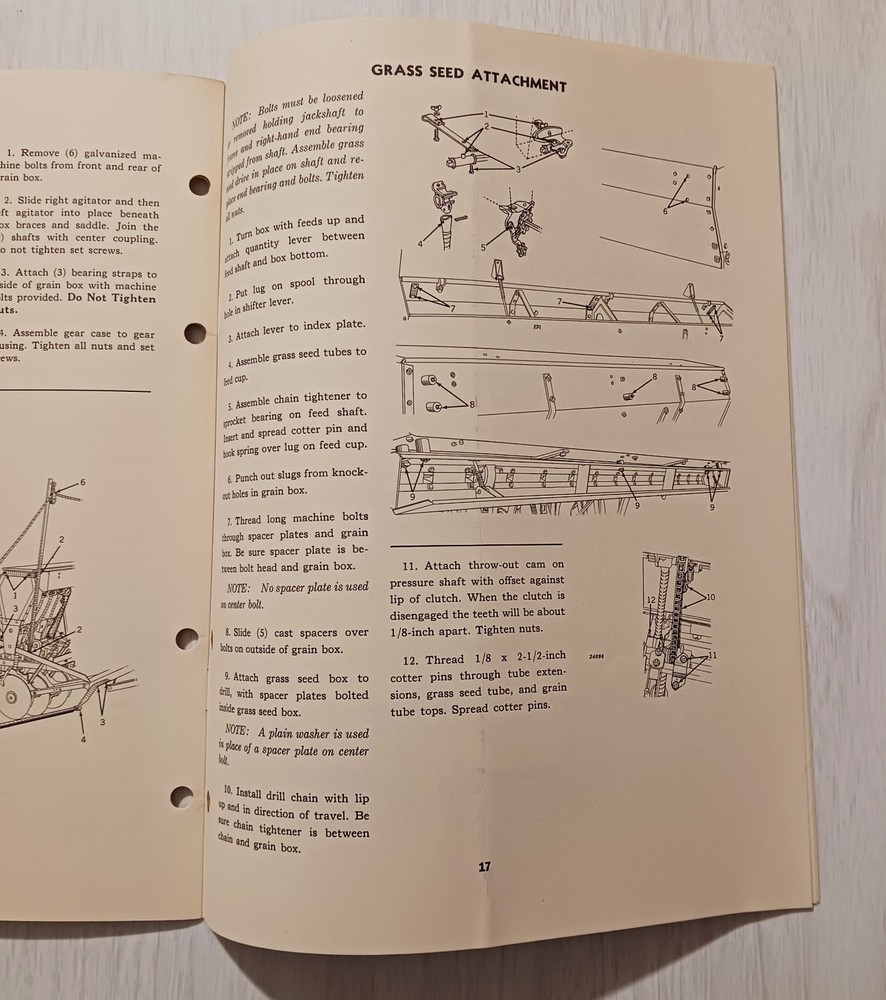 1. Remove (6) galvanized ma-
hine bolts from front and rear of
rain box.
2. Slide right agitator and then
eft agitator into place beneath
ox braces and saddle. Join the
) shafts with center coupling.
o not tighten set screws.
3. Attach (3) bearing straps to
side of grain box with machine
lts provided. Do Not Tighten
uts.
4. Assemble gear case to gear
using. Tighten all nuts and set
ews.
6
2
1
3
2
3
4
GRASS SEED ATTACHMENT
NOTE: Bolts must be loosened
removed holding jackshaft to
and right-hand end bearing
from shaft. Assemble grass
seed drive in place on shaft and re-
place end bearing and bolts. Tighten
all nuts.
1. Turn box with feeds up and
attach quantity lever between
feed shaft and box bottom.
2. Put lug on spool through
hole in shifter lever.
3. Attach lever to index plate.
4. Assemble grass seed tubes to
feed cup.
5. Assemble chain tightener to
sprocket bearing on feed shaft.
Insert and spread cotter pin and
hook spring over lug on feed cup.
6. Punch out slugs from knock-
out holes in grain box.
7. Thread long machine bolts
through spacer plates and grain
box. Be sure spacer plate is be-
tween bolt head and grain box.
NOTE: No spacer plate is used
on center bolt.
8. Slide (5) cast spacers over
bolts on outside of grain box.
9. Attach grass seed box to
drill, with spacer plates bolted
inside grass seed box.
NOTE: A plain washer is used
in place of a spacer plate on center
bolt.
10. Install drill chain with lip
up and in direction of travel. Be
sure chain tightener is between
chain and grain box.
1
2
3
4
5
6
7
7
7
8
8
8
9
9
9
11. Attach throw-out cam on
pressure shaft with offset against
lip of clutch. When the clutch is
disengaged the teeth will be about
1/8-inch apart. Tighten nuts.
12. Thread 1/8 x 2-1/2-inch
cotter pins through tube exten-
sions, grass seed tube, and grain
tube tops. Spread cotter pins.
12
10
11
17